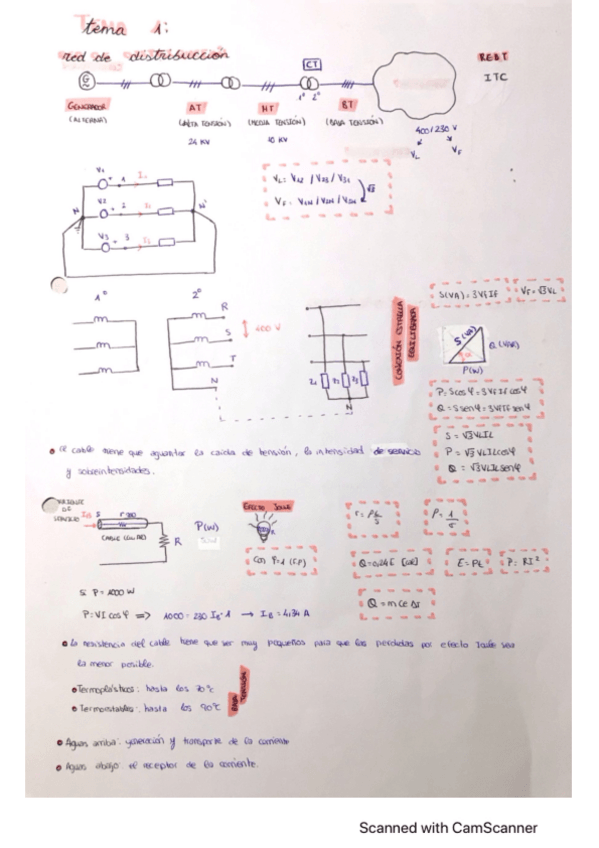 tema 1:
red de distribución
G
CT
1º 2º
R.E.B.T
ITC
GENERADOR
(ALTERNA)
AT
(ALTA TENSIÓN)
24 KV
MT
(MEDIA TENSIÓN)
10 KV
BT
(BAJA TENSIÓN)
400/230 V
VL VF
V1 1 I1
V2 2
V3 3 I3
N N'
VL = V12 / V23 / V31
VF = V1N / V2N / V3N
√3
1º
2º
R
S
T
N
400 V
Z1 Z2 Z3
N
CONEXIÓN ESTRELLA EQUILIBRADA
S(VA) = 3VFIF
VF = √3VL
S(VA)
Q(VAR)
P(W)
P = Scosφ = 3VFIFcosφ
Q = Ssenφ = 3VFIFsenφ
S = √3VLIL
P = √3VLILcosφ
Q = √3VLILsenφ
• El cable tiene que aguantar la caída de tensión, la intensidad de servicio
y sobreintensidades.
DE
SERVICIO
IB
S
CABLE
R
P(W)
EFECTO JOULE
Con φ=1 (F.P)
r = ρL/S
Q=0,24E [cal]
E = Pt
P = RI²
Q = mceΔt
Si P = 1000 W
P = VI cosφ => 1000 = 230 IB·1 → IB = 4,34 A
• La resistencia del cable tiene que ser muy pequeña para que las perdidas por efecto Joule sea
la menor posible.
• Termoplásticos: hasta los 70ºC
• Termoestables: hasta los 90ºC
BAJA TENSIÓN
• Aguas arriba: generación y transporte de la corriente
• Aguas abajo: el receptor de la corriente.
Scanned with CamScanner